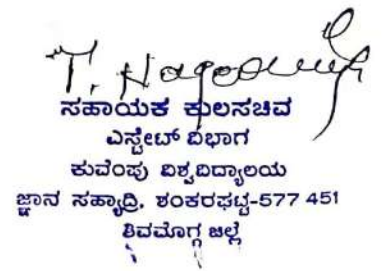 ಸಹಾಯಕ ಕುಲಸಚಿವ
ಎಸ್ಟೇಟ್ ವಿಭಾಗ
ಕುವೆಂಪು ವಿಶ್ವವಿದ್ಯಾಲಯ
ಜ್ಞಾನ ಸಹ್ಯಾದ್ರಿ, ಶಂಕರಘಟ್ಟ-577 451
ಶಿವಮೊಗ್ಗ ಜಿಲ್ಲೆ